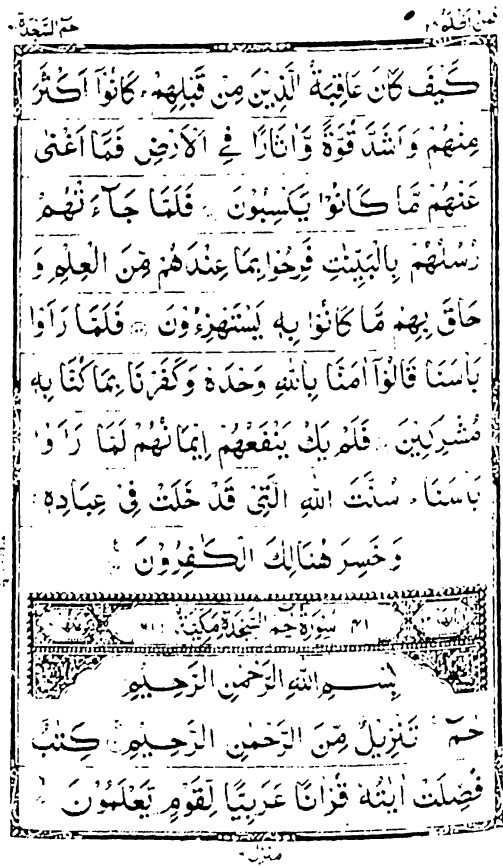 فمن اظلم ٢٤ حٰمٓ السجدة
كَيْفَ كَانَ عَاقِبَةُ الَّذِيْنَ مِنْ قَبْلِهِمْ كَانُوْٓا اَكْثَرَ
مِنْهُمْ وَاَشَدَّ قُوَّةً وَّاٰثَارًا فِي الْاَرْضِ فَمَآ اَغْنٰى
عَنْهُمْ مَّا كَانُوْا يَكْسِبُوْنَ فَلَمَّا جَآءَتْهُمْ
رُسُلُهُمْ بِالْبَيِّنٰتِ فَرِحُوْا بِمَا عِنْدَهُمْ مِّنَ الْعِلْمِ وَ
حَاقَ بِهِمْ مَّا كَانُوْا بِهٖ يَسْتَهْزِءُوْنَ فَلَمَّا رَاَوْا
بَاْسَنَا قَالُوْٓا اٰمَنَّا بِاللّٰهِ وَحْدَهٗ وَكَفَرْنَا بِمَا كُنَّا بِهٖ
مُشْرِكِيْنَ فَلَمْ يَكُ يَنْفَعُهُمْ اِيْمَانُهُمْ لَمَّا رَاَوْا
بَاْسَنَا سُنَّتَ اللّٰهِ الَّتِيْ قَدْ خَلَتْ فِيْ عِبَادِهٖ
وَخَسِرَ هُنَالِكَ الْكٰفِرُوْنَ
٤١ سُوْرَةُ حٰمٓ السَّجْدَةِ مَكِّيَّةٌ ٦١
بِسْمِ اللّٰهِ الرَّحْمٰنِ الرَّحِيْمِ
حٰمٓ تَنْزِيْلٌ مِّنَ الرَّحْمٰنِ الرَّحِيْمِ كِتٰبٌ
فُصِّلَتْ اٰيٰتُهٗ قُرْاٰنًا عَرَبِيًّا لِّقَوْمٍ يَّعْلَمُوْنَ
منزل